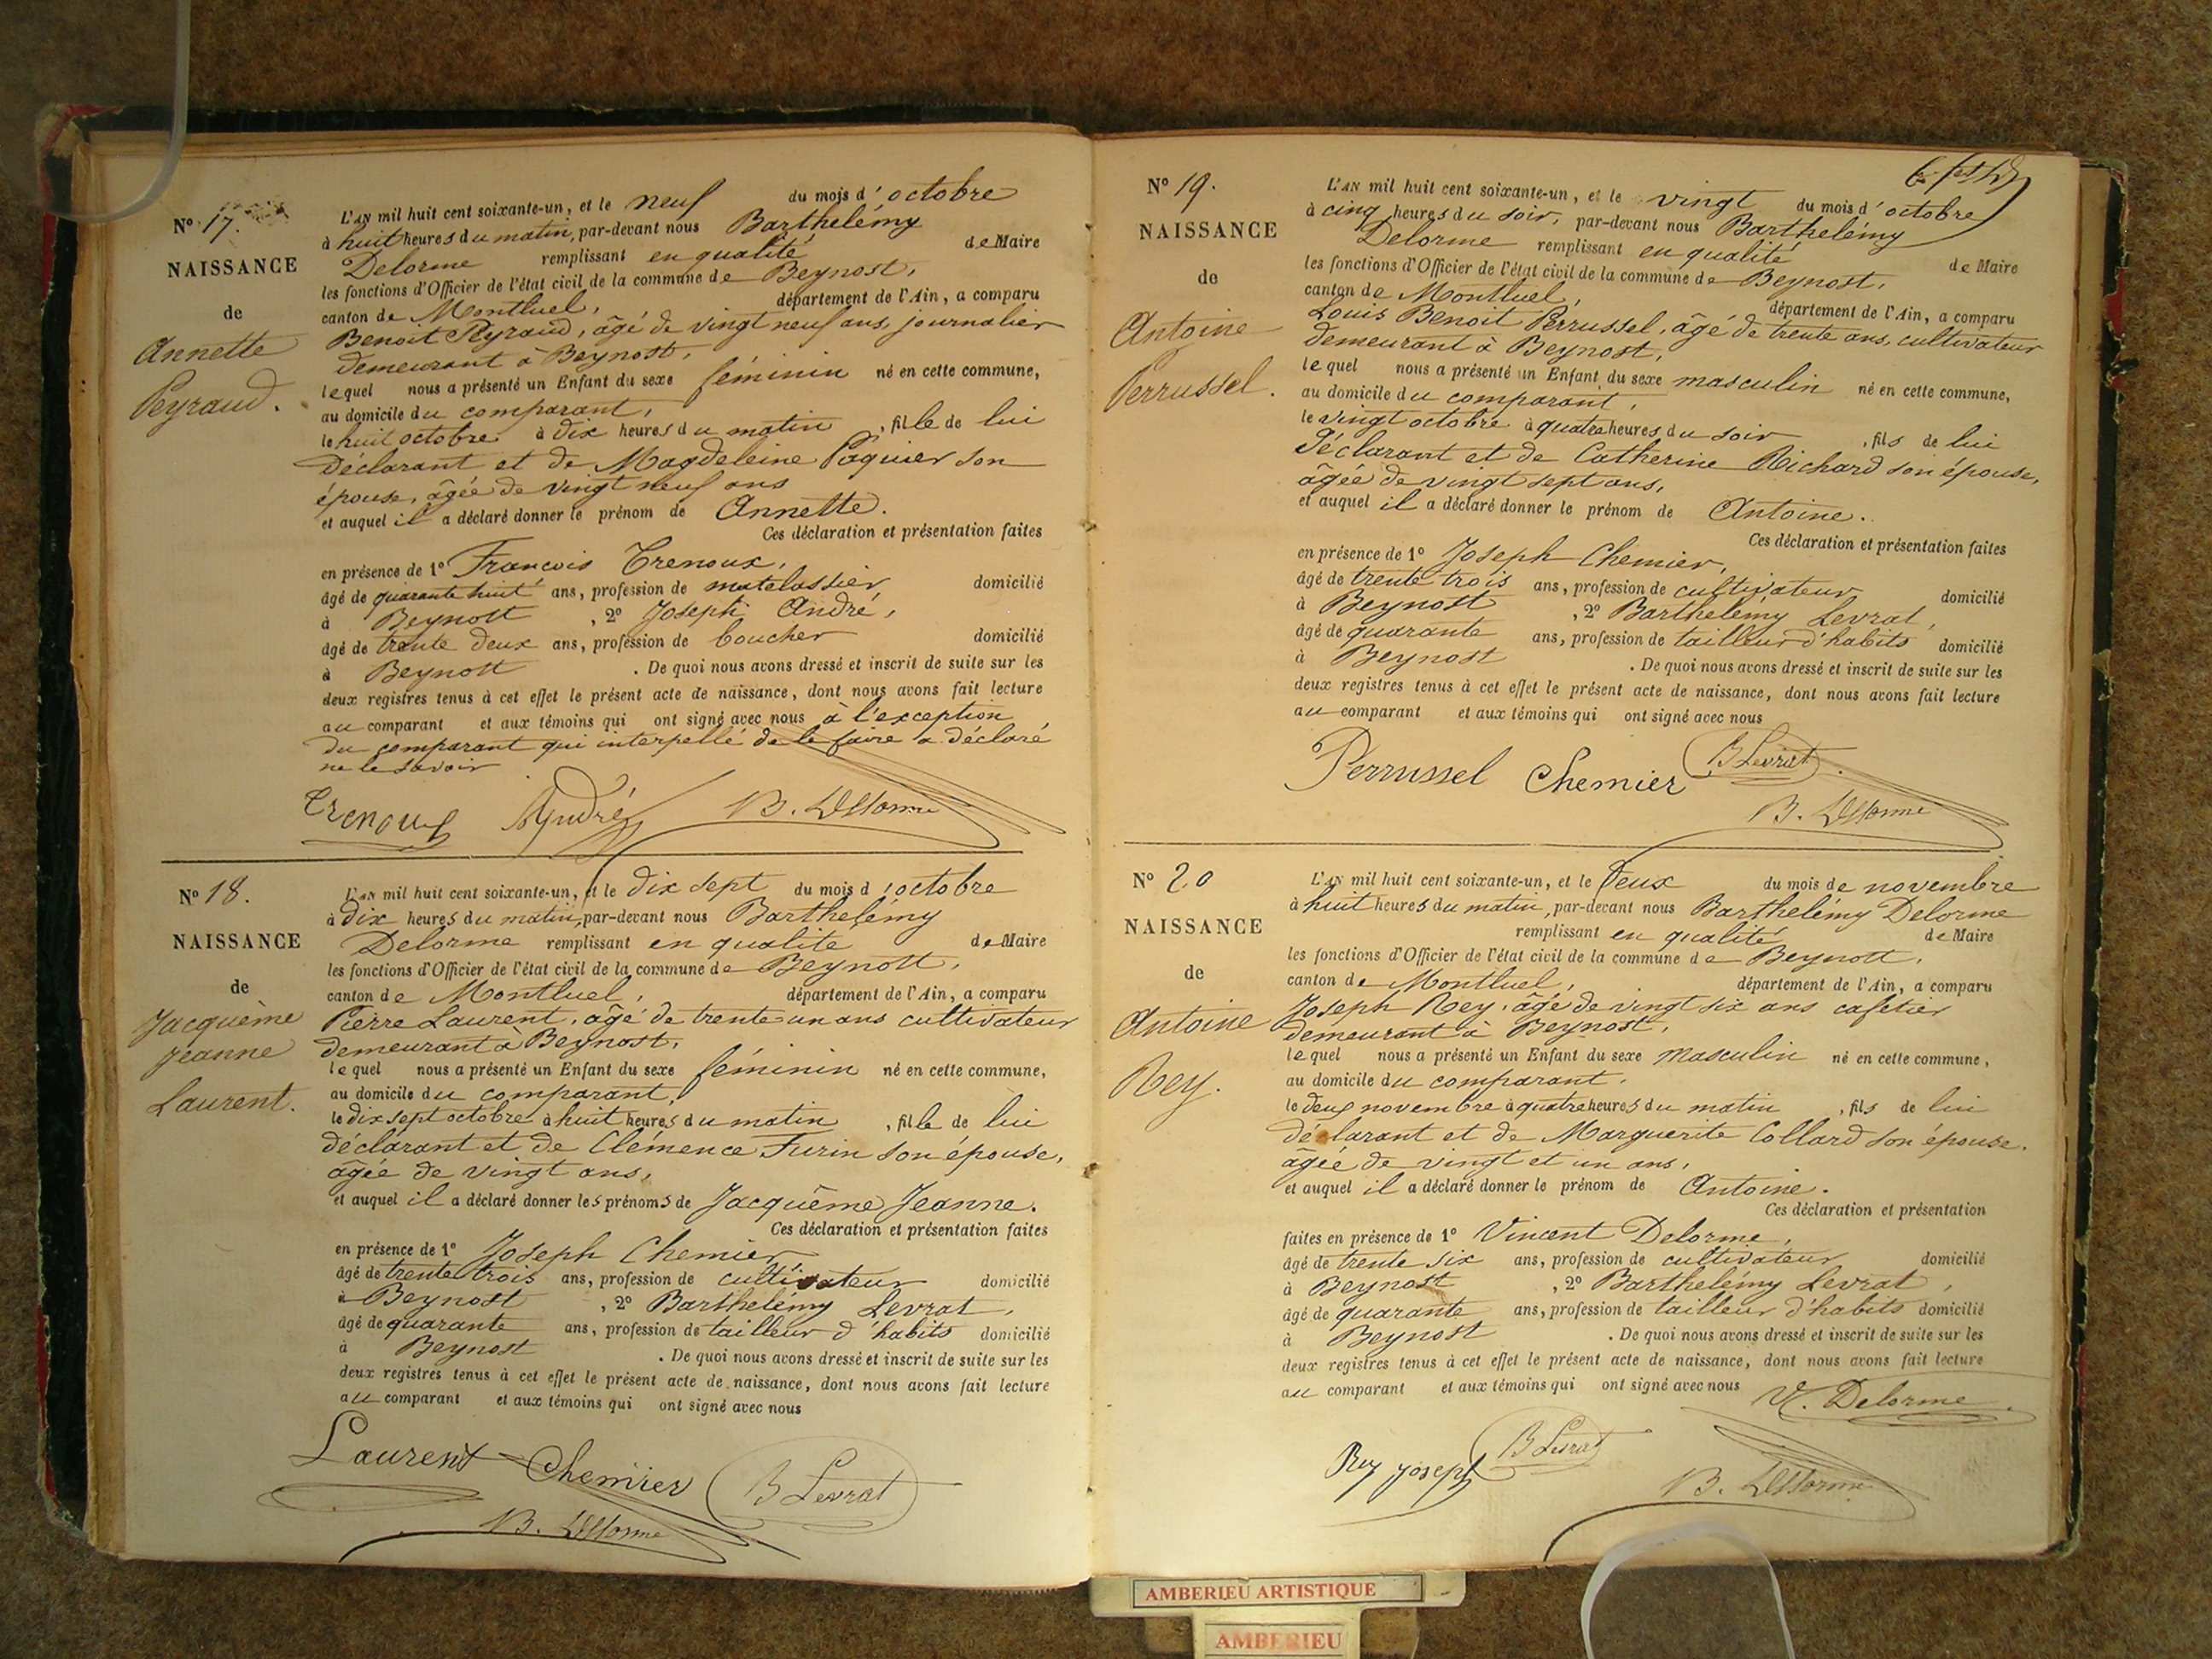 N° 17.
NAISSANCE
de
Annette
Peyraud.
L'AN mil huit cent soixante-un, et le neuf du mois d'octobre
à huit heures du matin, par-devant nous Barthelémy
Delorme remplissant en qualité de Maire
les fonctions d'Officier de l'état civil de la commune de Beynost,
canton de Montluel, département de l'Ain, a comparu
Benoit Peyraud, âgé de vingt neuf ans, journalier
demeurant à Beynost,
lequel nous a présenté un Enfant du sexe féminin né en cette commune,
au domicile du comparant,
le huit octobre à dix heures du matin, fille de lui
déclarant et de Magdeleine Paquier son
épouse, âgée de vingt neuf ans
et auquel il a déclaré donner le prénom de Annette.
Ces déclaration et présentation faites
en présence de 1° Francois Trenoux,
âgé de quarante huit ans, profession de matelassier domicilié
à Beynost, 2° Joseph André,
âgé de trente deux ans, profession de boucher domicilié
à Beynost. De quoi nous avons dressé et inscrit de suite sur les
deux registres tenus à cet effet le présent acte de naissance, dont nous avons fait lecture
au comparant et aux témoins qui ont signé avec nous à l'exception
du comparant qui interpellé de le faire a déclaré
ne le savoir
Trenoux André B. Delorme
N° 18.
NAISSANCE
de
Jacquème
Jeanne
Laurent.
L'AN mil huit cent soixante-un, et le dix sept du mois d'octobre
à dix heures du matin, par-devant nous Barthelémy
Delorme remplissant en qualité de Maire
les fonctions d'Officier de l'état civil de la commune de Beynost,
canton de Montluel, département de l'Ain, a comparu
Pierre Laurent, âgé de trente un ans cultivateur
demeurant à Beynost,
lequel nous a présenté un Enfant du sexe féminin né en cette commune,
au domicile du comparant,
le dix sept octobre à huit heures du matin, fille de lui
déclarant et de Clémence Furin son épouse,
âgée de vingt ans,
et auquel il a déclaré donner les prénoms de Jacquême Jeanne.
Ces déclaration et présentation faites
en présence de 1° Joseph Chemier,
âgé de trente trois ans, profession de cultivateur domicilié
à Beynost, 2° Barthelémy Levrat,
âgé de quarante ans, profession de tailleur d'habits domicilié
à Beynost. De quoi nous avons dressé et inscrit de suite sur les
deux registres tenus à cet effet le présent acte de naissance, dont nous avons fait lecture
au comparant et aux témoins qui ont signé avec nous
Laurent Chemier B Levrat
B. Delorme
N° 19.
NAISSANCE
de
Antoine
Perrussel.
L'AN mil huit cent soixante-un, et le vingt du mois d'octobre
à cinq heures du soir, par-devant nous Barthelémy
Delorme remplissant en qualité de Maire
les fonctions d'Officier de l'état civil de la commune de Beynost,
canton de Montluel, département de l'Ain, a comparu
Louis Benoit Perrussel, âgé de trente ans, cultivateur
demeurant à Beynost,
lequel nous a présenté un Enfant du sexe masculin né en cette commune,
au domicile du comparant,
le vingt octobre à quatre heures du soir, fils de lui
déclarant et de Catherine Richard son épouse,
âgée de vingt sept ans,
et auquel il a déclaré donner le prénom de Antoine.
Ces déclaration et présentation faites
en présence de 1° Joseph Chemier,
âgé de trente trois ans, profession de cultivateur domicilié
à Beynost, 2° Barthelémy Levrat,
âgé de quarante ans, profession de tailleur d'habits domicilié
à Beynost. De quoi nous avons dressé et inscrit de suite sur les
deux registres tenus à cet effet le présent acte de naissance, dont nous avons fait lecture
au comparant et aux témoins qui ont signé avec nous
Perrussel Chemier B Levrat
B. Delorme
N° 20
NAISSANCE
de
Antoine
Rey.
L'AN mil huit cent soixante-un, et le deux du mois de novembre
à huit heures du matin, par-devant nous Barthelémy Delorme
remplissant en qualité de Maire
les fonctions d'Officier de l'état civil de la commune de Beynost,
canton de Montluel, département de l'Ain, a comparu
Joseph Rey, âgé de vingt six ans cafetier
demeurant à Beynost,
lequel nous a présenté un Enfant du sexe masculin né en cette commune,
au domicile du comparant,
le deux novembre à quatre heures du matin, fils de lui
déclarant et de Marguerite Collard son épouse,
âgée de vingt et un ans,
et auquel il a déclaré donner le prénom de Antoine.
Ces déclaration et présentation
faites en présence de 1° Vincent Delorme,
âgé de trente six ans, profession de cultivateur domicilié
à Beynost, 2° Barthelémy Levrat,
âgé de quarante ans, profession de tailleur d'habits domicilié
à Beynost. De quoi nous avons dressé et inscrit de suite sur les
deux registres tenus à cet effet le présent acte de naissance, dont nous avons fait lecture
au comparant et aux témoins qui ont signé avec nous V. Delorme
Rey Joseph B Levrat
B. Delorme
AMBERIEU ARTISTIQUE
AMBERIEU